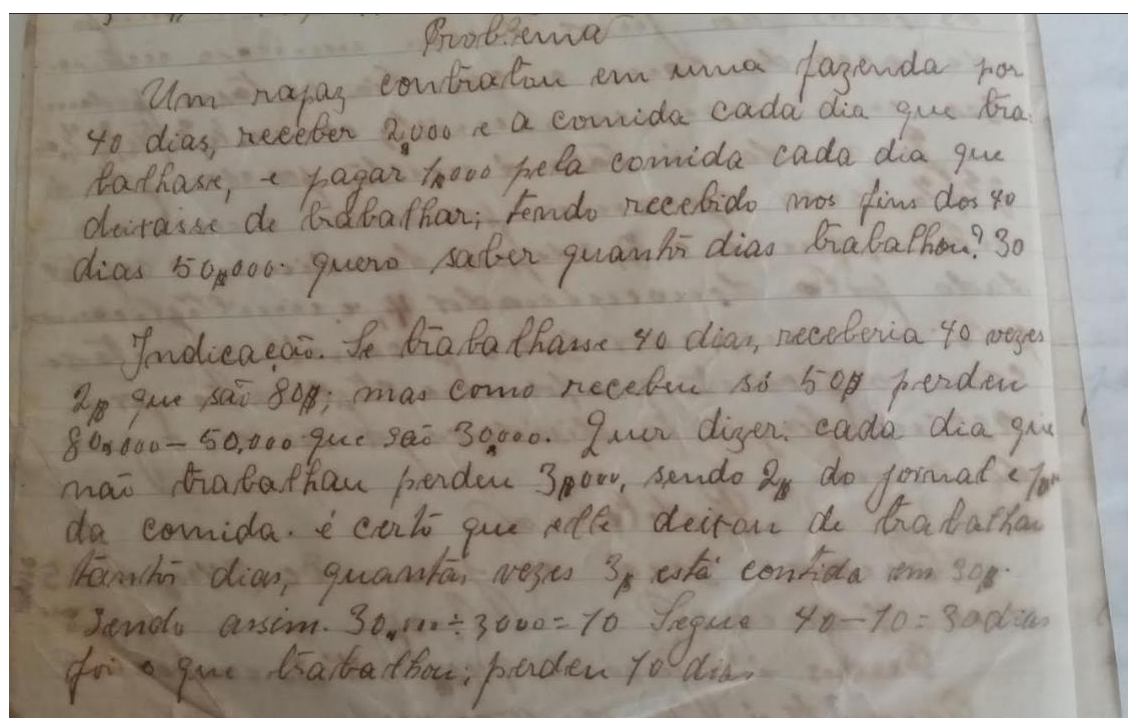 Problema
Um rapaz contratou em uma fazenda por
40 dias, receber 2$000 e a comida cada dia que tra
balhase, e pagar 1$000 pela comida cada dia que
deixasse de trabalhar; tendo recebido nos fins dos 40
dias 50$000. quero saber quantos dias trabalhou? 30
Indicação. Se trabalhasse 40 dias, receberia 40 vezes
2$ que são 80$; mas como recebeu só 50$ perdeu
80$000 - 50,000 que são 30$000. Quer dizer. cada dia que
não trabalhau perdeu 3$000, sendo 2$ do jornal e
da comida. é certo que elle deixou de trabalhar
tantos dias, quantas vezes 3$ está contida em 30$.
Sendo assim. 30$000 ÷ 3000 = 10 Segue 40 - 10 = 30 dias
foi o que trabalhou; perdeu 10 dias